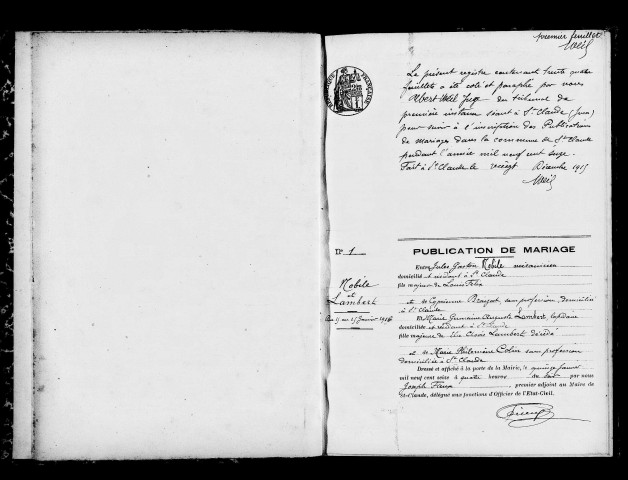 premier feuillet
Le présent registre contenant trente quatre
feuillets a été coté et paraphé par nous
Albert Juge du tribunal de
première instance séant à St Claude (Jura)
pour servir à l'inscription des Publications
de mariages dans la commune de St Claude
pendant l'année mil neuf cent seize.
Fait à St Claude le vingt Décembre 1915
N° 1
Nobile
et
Lambert
PUBLICATION DE MARIAGE
Entre Jules Gaston Nobile mécanicien
domicilié et résidant à St Claude
fils majeur de Louis Félix
et de Cyprienne sans profession, domiciliés
à St Claude
Et Marie Germaine Augusta Lambert, lapidaire
domiciliée et résidant à St Claude
fille majeure de Lambert décédé
et de Marie Philomène sans profession
domiciliée à St Claude
Dressé et affiché à la porte de la Mairie, le quinze Janvier
mil neuf cent seize à quatre heures du soir par nous
Joseph, premier adjoint au Maire de
St-Claude, délégué aux fonctions d'Officier de l'Etat-Civil.